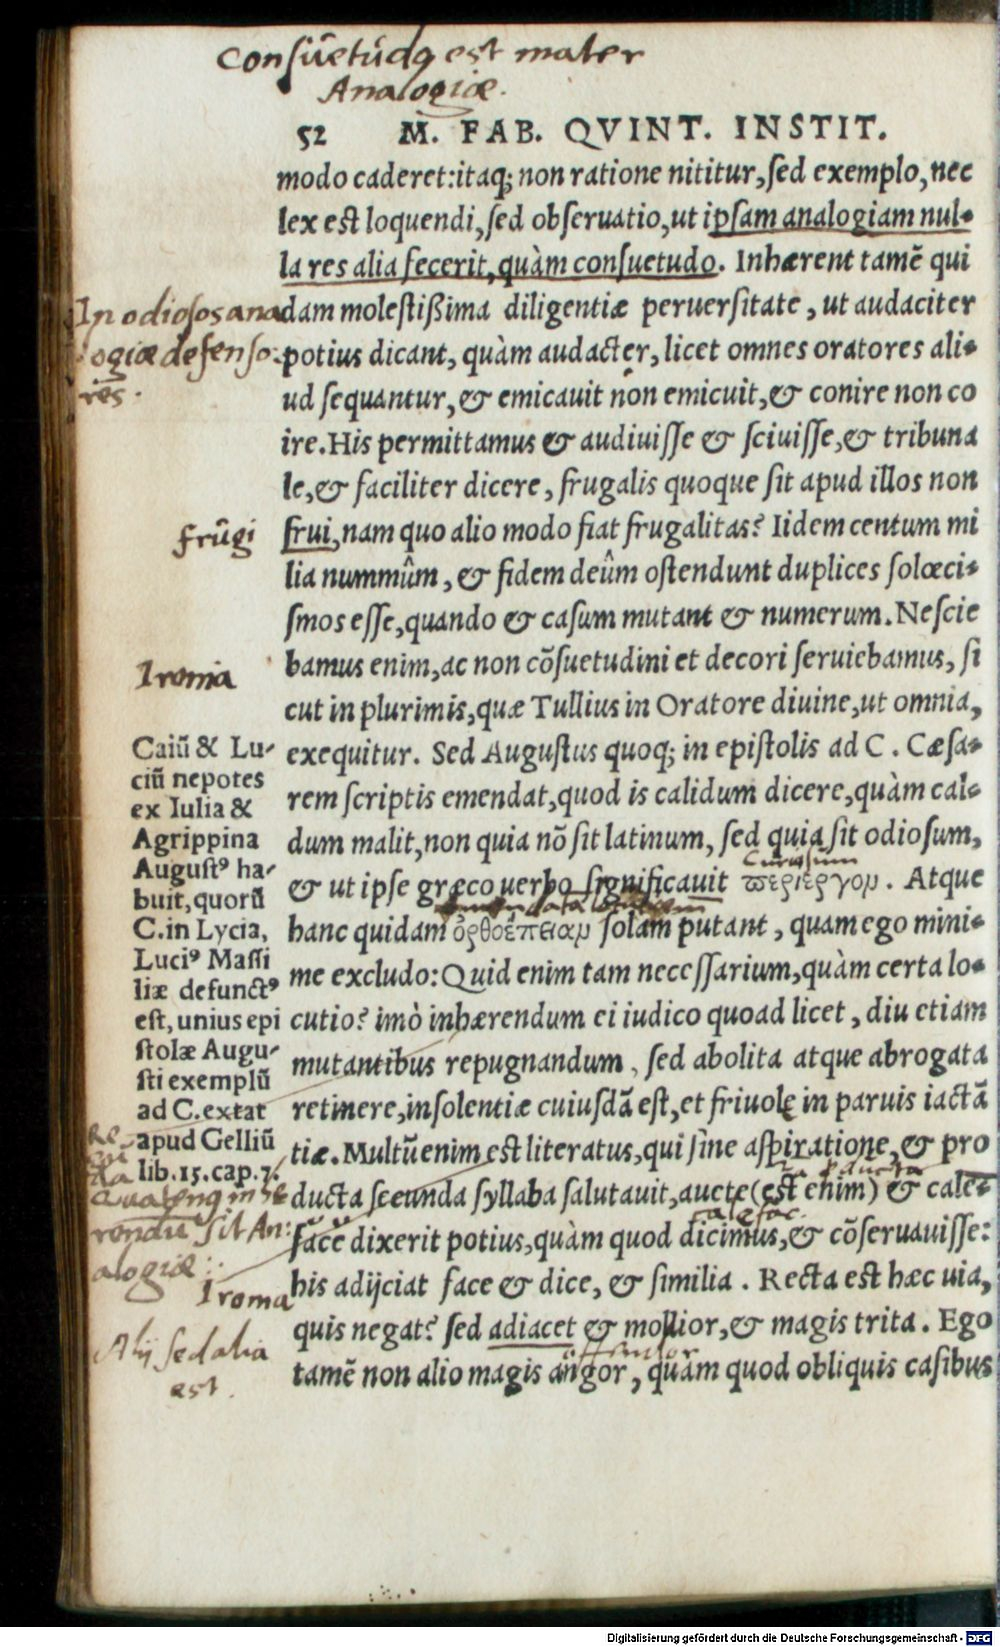 Consuetudo est mater
Analogiæ.
52 M. FAB. QVINT. INSTIT.
modo caderet: itaq; non ratione nititur, sed exemplo, nec
lex est loquendi, sed obseruatio, ut ipsam analogiam nul-
la res alia fecerit, quàm consuetudo. Inhærent tamē qui
dam molestißima diligentiæ peruersitate, ut audaciter
potius dicant, quàm audacter, licet omnes oratores ali-
ud sequantur, & emicauit non emicuit, & conire non co
ire. His permittamus & audiuisse & sciuisse, & tribuna
le, & faciliter dicere, frugalis quoque sit apud illos non
frui, nam quo alio modo fiat frugalitas? Iidem centum mi
lia nummûm, & fidem deûm ostendunt duplices solœci-
smos esse, quando & casum mutant & numerum. Nescie
bamus enim, ac non cõsuetudini et decori seruiebamus, si
cut in plurimis, quæ Tullius in Oratore diuine, ut omnia,
exequitur. Sed Augustus quoq; in epistolis ad C. Cæsa-
rem scriptis emendat, quod is calidum dicere, quàm cal-
dum malit, non quia nõ sit latinum, sed quia sit odiosum,
& ut ipse græco uerbo significauit περίεργον. Atque
hanc quidam ὀρθοέπειαν solam putant, quam ego mini-
me excludo: Quid enim tam necessarium, quàm certa lo-
cutio? imò inhærendum ei iudico quoad licet, diu etiam
mutantibus repugnandum, sed abolita atque abrogata
retinere, insolentiæ cuiusdã est, et friuolę in paruis iactã
tiæ. Multũ enim est literatus, qui sine aspiratione, & pro
ducta secunda syllaba salutauit, auete (est enim) & cale-
face dixerit potius, quàm quod dicimus, & cõseruauisse:
his adijciat face & dice, & similia. Recta est hæc uia,
quis negat? sed adiacet & mollior, & magis trita. Ego
tamē non alio magis angor, quàm quod obliquis casibus
In odiosos ana
logiæ defenso-
res.
frūgi
Ironia
Caiũ & Lu-
ciũ nepotes
ex Iulia &
Agrippina
August⁹ ha-
buit, quorũ
C. in Lycia,
Luci⁹ Massi
liæ defunct⁹
est, unius epi
stolæ Augu-
sti exemplũ
ad C. extat
apud Gelliũ
lib. 15. cap. 7.
Quatenq inhę
rendũ sit An:
alogiæ:
Ironia
Alij sed alia
est.